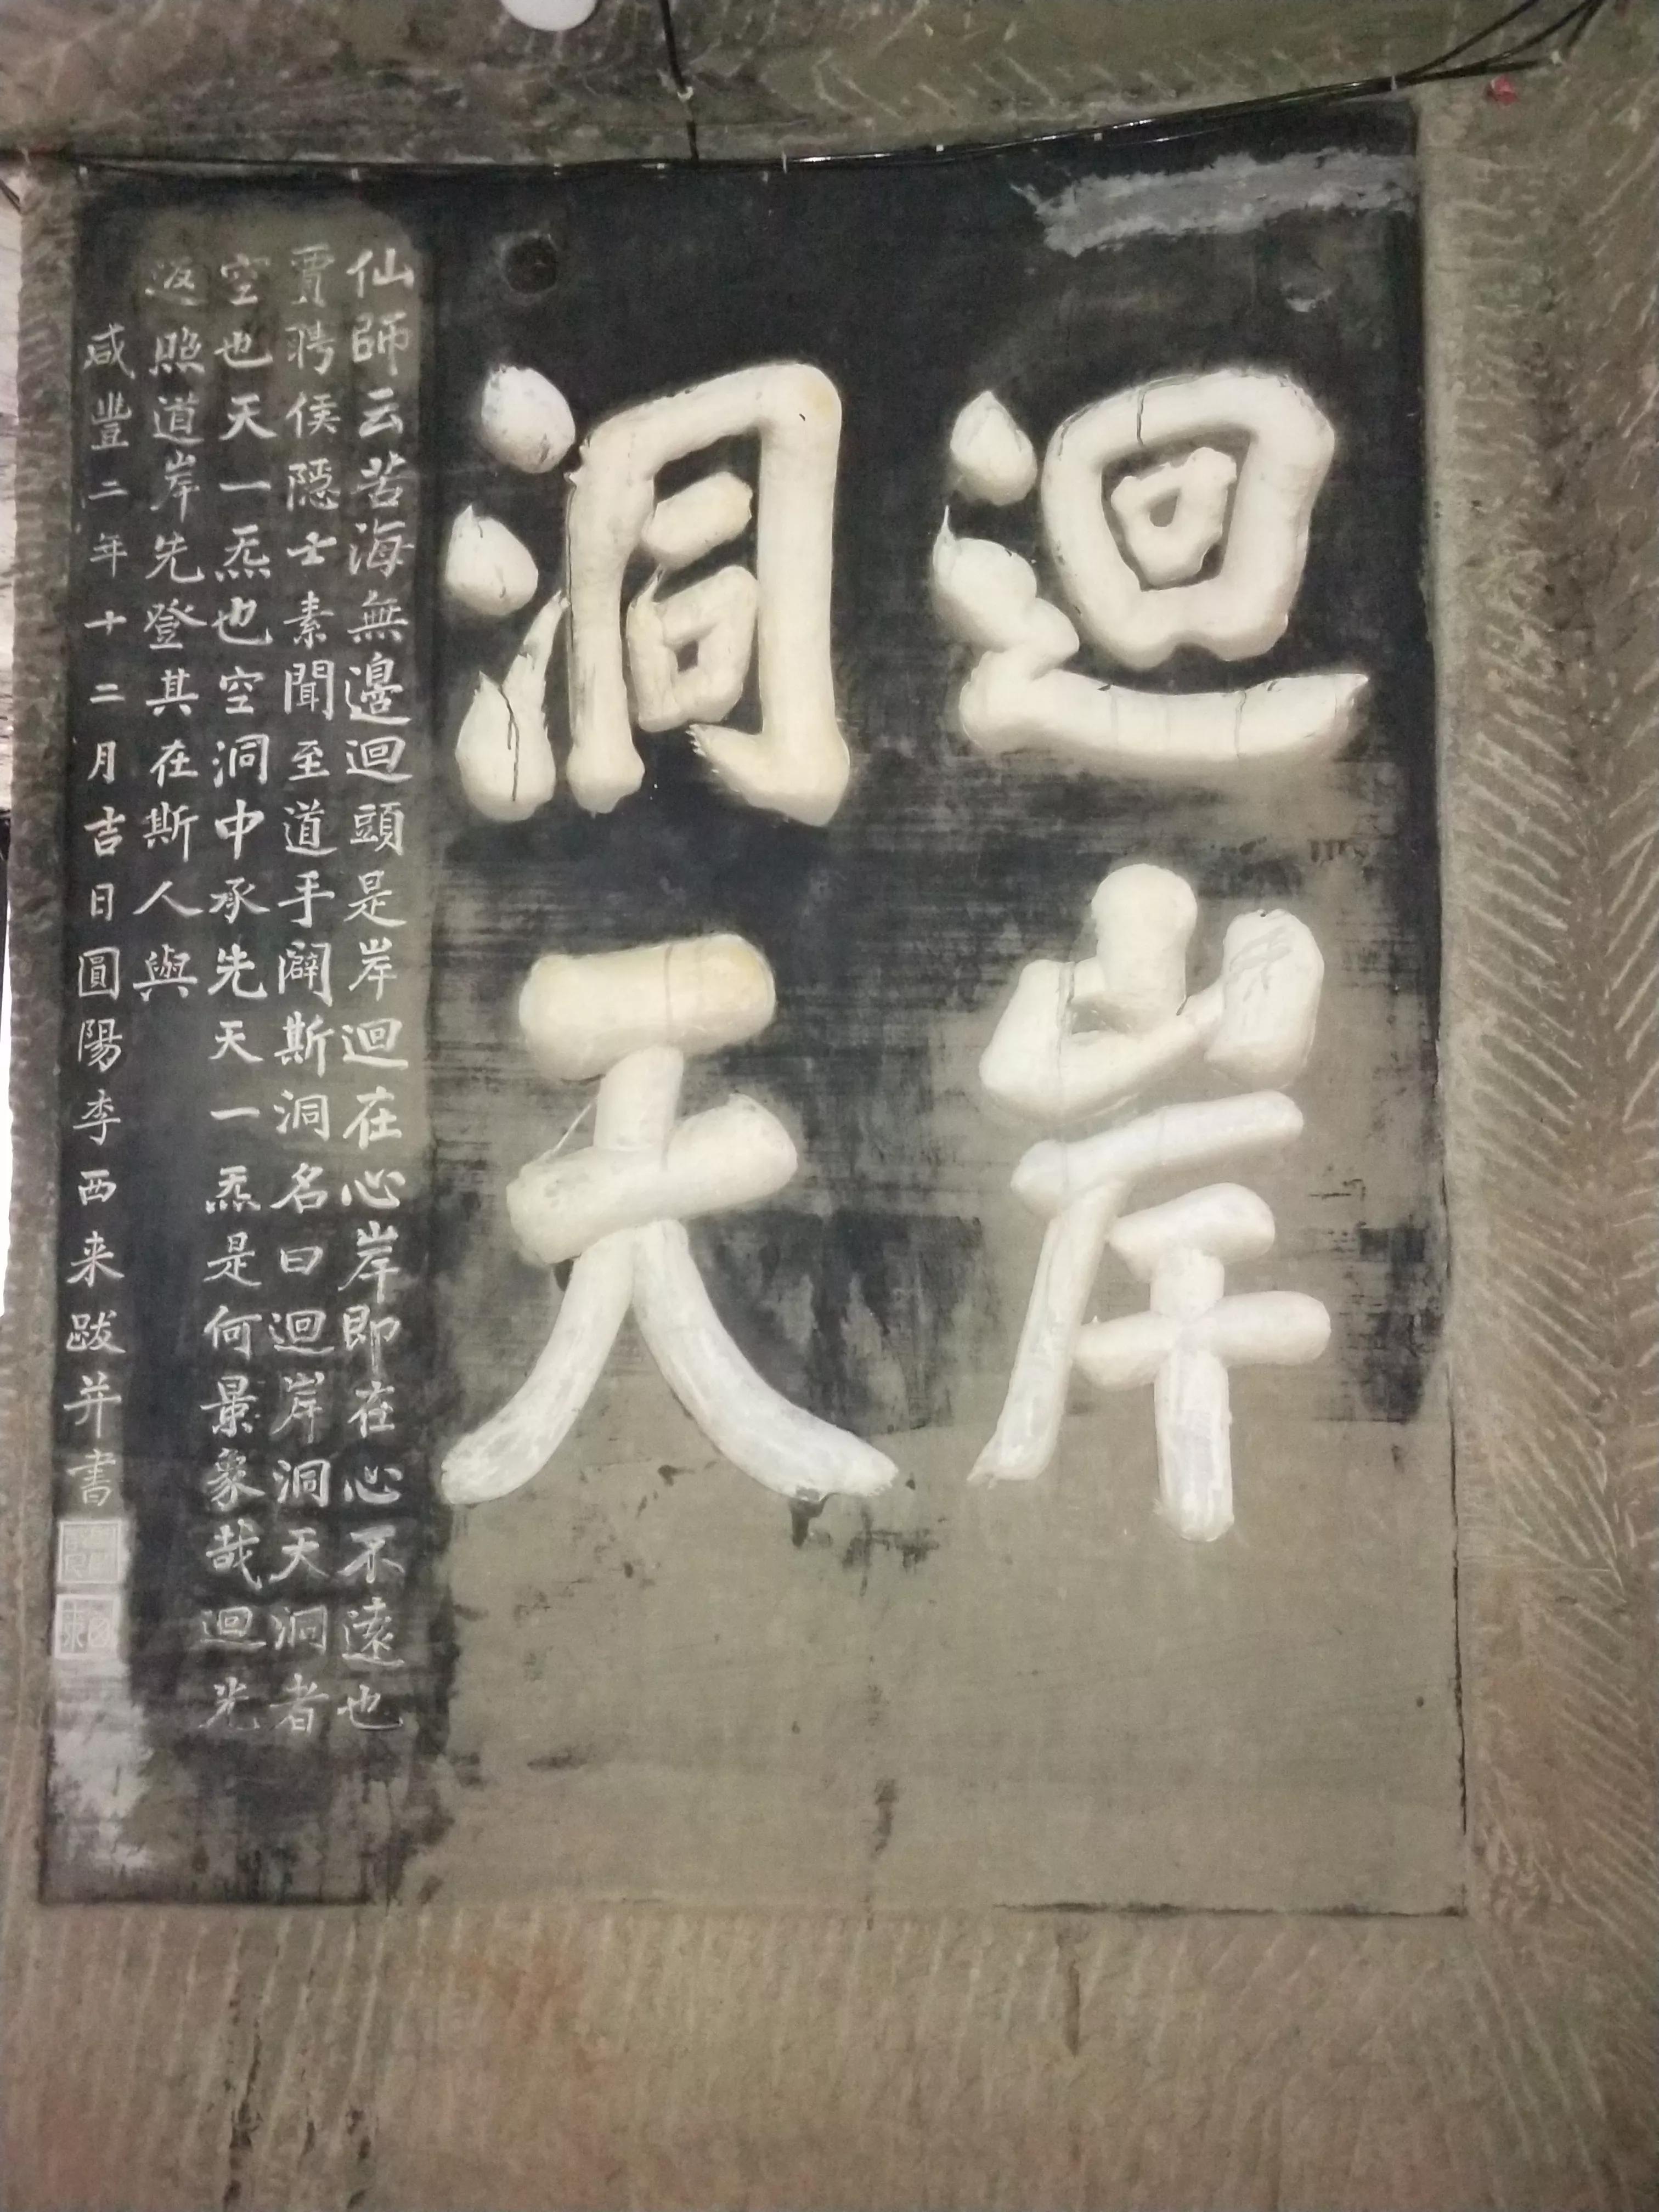 迴岸
洞天
仙師云苦海無邊迴頭是岸迴在心岸即在心不遠也
賈聘侯隱士素聞至道手闢斯洞名曰迴岸洞天洞者
空也天一炁也空洞中承先天一炁是何景象哉迴光
返照道岸先登其在斯人與
咸豐二年十二月吉日圓陽李西来跋并書